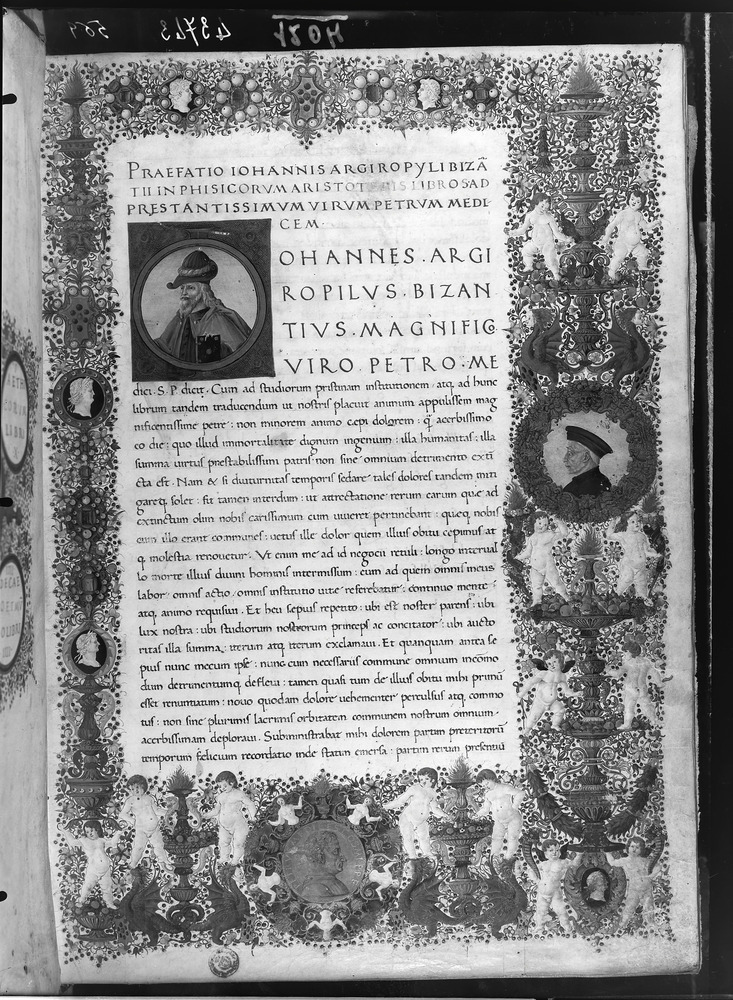 564 43743 HO2T
PRAEFATIO IOHANNIS ARGIROPYLI BIZĀ
TII IN PHISICORVM ARISTOTELIS LIBROS AD
PRESTANTISSIMVM VIRVM PETRVM MEDI
CEM.
OHANNES . ARGI
ROPILVS . BIZAN
TIVS . MAGNIFICO
VIRO . PETRO . ME
dici . S. P. dicit . Cum ad studiorum pristinam institutionem . atq; ad hunc
librum tandem traducendum ut nostris placuit animum appulissem mag
nificentissime petre : non minorem animo cepi dolorem : q̄ acerbissimo
eo die : quo illud immortalitate dignum ingenium : illa humanitas : illa
summa uirtus prestabilissimi patris non sine omnium detrimento extī
cta est . Nam & si diuturnitas temporis sedare tales dolores tandem miti
gareq; solet : fit tamen interdum : ut attrectatione rerum earum que ad
extinctum olim nobis carissimum cum uiueret pertinebant : queq; nobis
cum illo erant communes : uetus ille dolor quem illius obitu cepimus at
q; molestia renouetur . Vt enim me ad id negocii retuli : longo interual
lo morte illius diuini hominis intermissum : cum ad quem omnis meus
labor omnis actio omnis institutio uite referebatur : continuo mente
atq; animo requisiui . Et heu sepius repetito : ubi est noster parens : ubi
lux nostra : ubi studiorum nostrorum princeps ac concitator : ubi aucto
ritas illa summa : iterum atq; iterum exclamaui . Et quanquam antea se
pius nunc mecum ipse : nunc cum necessariis commune omnium incōmo
dum detrimentumq; defleui : tamen quasi tum de illius obitu mihi primū
esset renuntiatum : nouo quodam dolore uehementer perculsus atq; commo
tus : non sine plurimis lacrimis orbitatem communem nostrum omnium
acerbissimam deploraui . Subministrabat mihi dolorem partim preteritorū
temporum felicium recordatio inde statim emersa : partim rerum presentiū